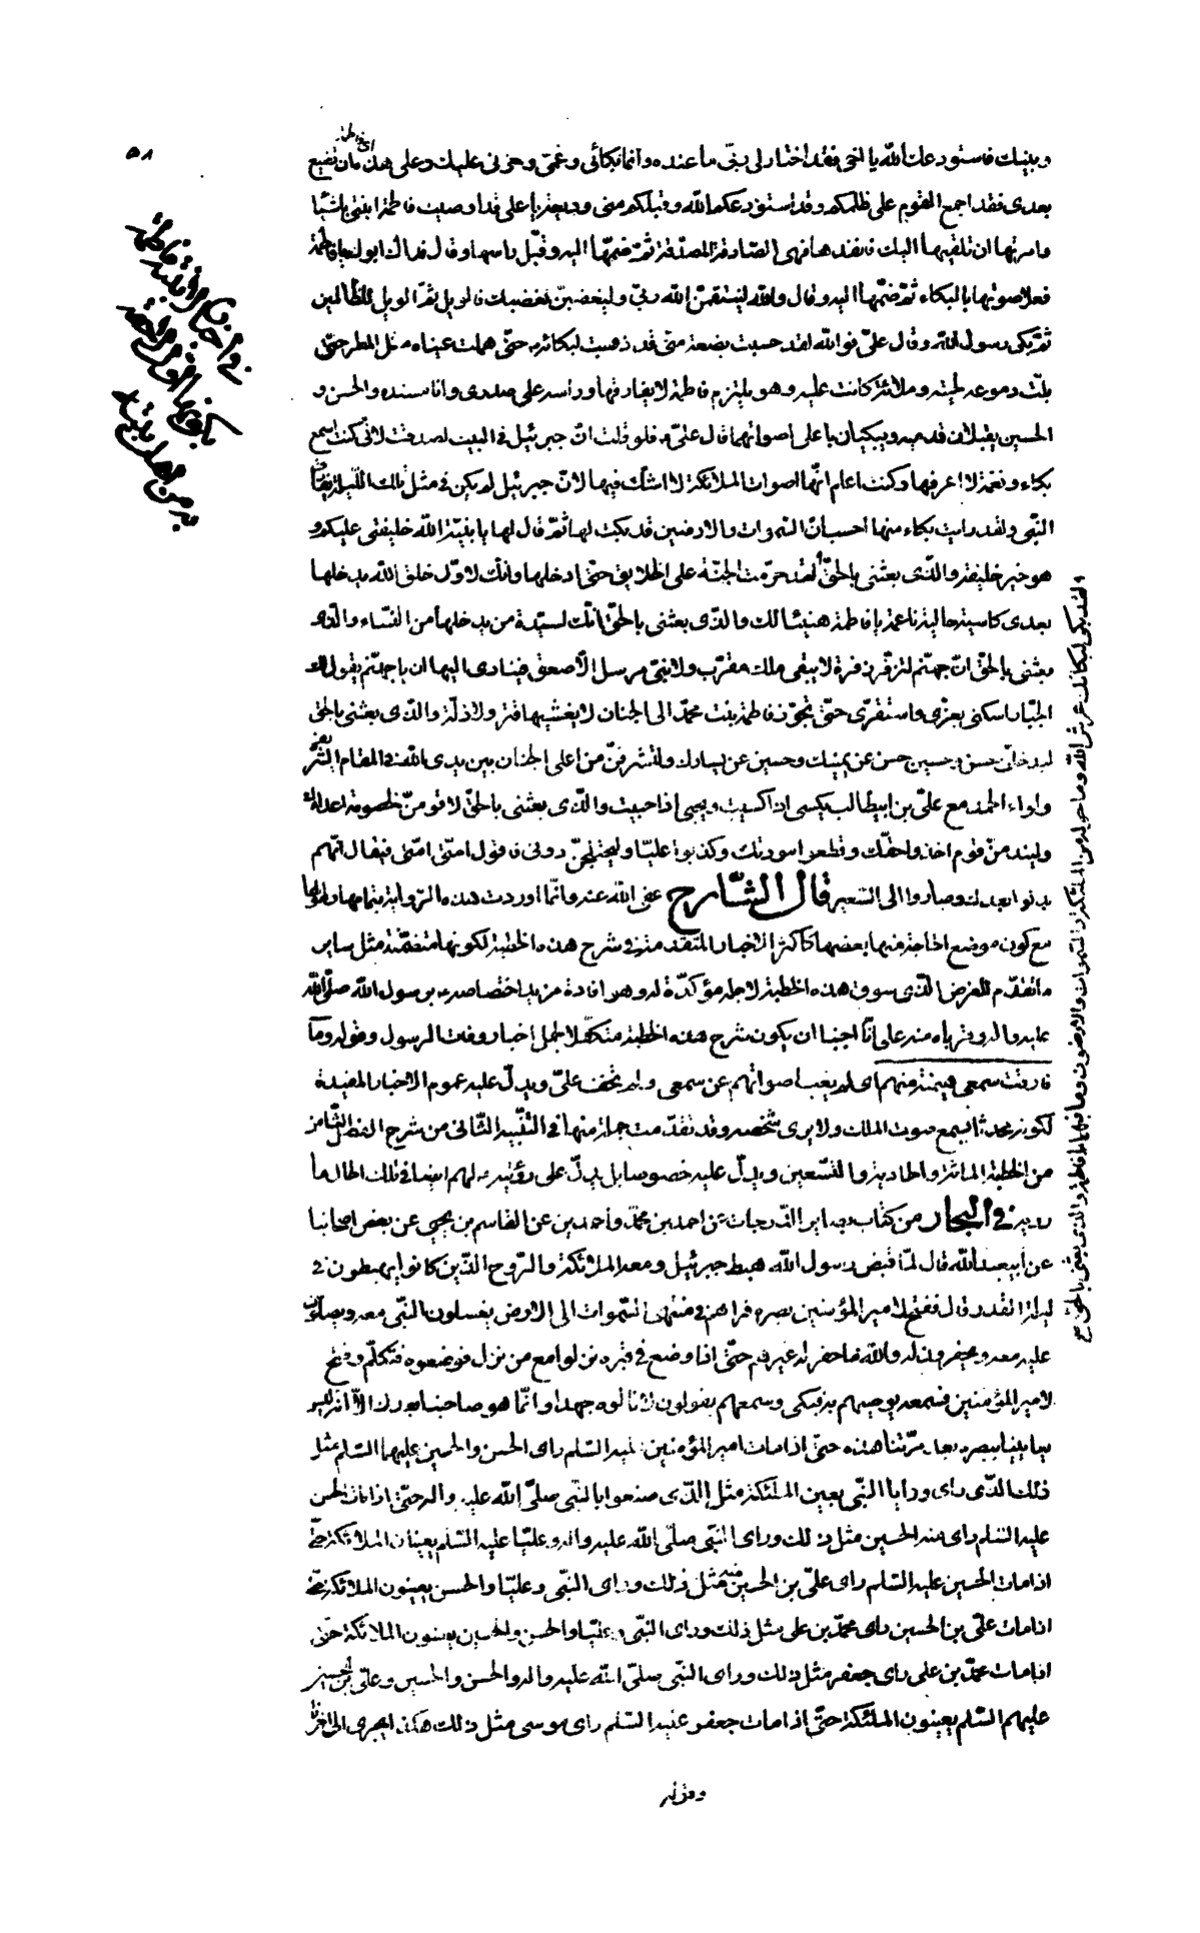 ٥٨
وبينك فاستودعك الله يا اخي فقد اختار لي ربي ما عنده وانما بكائي وغمي وحزني عليك وعلى هذه ان تضيع
اي فاطمة
بعدي فقد اجمع القوم على ظلمكم وقد استودعكم الله وقبلكم مني وديعة يا علي قد اوصيت فاطمة ابنتي باشياء
وامرتها ان تلقيها اليك فانفذها فهي الصادقة الصدوقة ثم ضمها اليه وقبل راسها وقال فداك ابوك يا فاطمة
فعلا صوتها بالبكاء ثم ضمها اليه وقال والله لينتقمن الله ربي وليغضبن لغضبك فالويل ثم الويل للظالمين
ثم بكى رسول الله وقال علي فوالله لقد حسبت بضعة مني قد ذهبت لبكائه حتى هملت عيناه مثل المطر حتى
بلت دموعه لحيته وملاءة كانت عليه وهو يلتزم فاطمة لا يفارقها وراسه على صدري وانا مسنده والحسن و
الحسين يقبلان قدميه ويبكيان باعلى اصواتهما قال علي فلو قلت ان جبرئيل في البيت لصدقت لاني كنت اسمع
بكاء ونغمة لا اعرفها وكنت اعلم انها اصوات الملائكة لا اشك فيها لان جبرئيل لم يكن في مثل تلك الليلة يفارق
النبي ولقد رايت بكاء منها احسب ان السموات والارضين قد بكت لها ثم قال لها يا بنية الله خليفتي عليكم و
هو خير خليفة والذي بعثني بالحق لقد حرمت الجنة على الخلايق حتى ادخلها وانك لاول خلق الله يدخلها
بعدي كاسية حالية ناعمة يا فاطمة هنيئا لك والذي بعثني بالحق انك لسيدة من يدخلها من النساء والذي
بعثني بالحق ان جهنم لتزفر زفرة لا يبقى ملك مقرب ولا نبي مرسل الا صعق فينادى اليها ان يا جهنم يقول لك
الجبار اسكني بعزي واستقري حتى تجوز فاطمة بنت محمد الى الجنان لا يغشيها قتر ولا ذلة والذي بعثني بالحق
ليدخلن حسن وحسين حسن عن يمينك وحسين عن يسارك ولتشرفن من اعلى الجنان بين يدي الله في المقام الشريف
ولواء الحمد مع علي بن ابيطالب يكسى اذا كسيت ويحبى اذا حبيت والذي بعثني بالحق لاقومن بخصومة اعدائك
وليندمن قوم اخذوا حقك وقطعوا مودتك وكذبوا علي وليختلجن دوني فاقول امتي امتي فيقال انهم
بدلوا بعدك وصاروا الى السعير قال الشارح عفى الله عنه وانما اوردت هذه الرواية بتمامها وطولها
مع كون موضع الحاجة منها بعضها كاكثر الاخبار المتقدمة في شرح هذه الخطبة لكونها متضمنة مثل ساير
ما تقدم للغرض الذي سوق هذه الخطبة لاجله مؤكدة له وهو افادة مزيد اختصاصه برسول الله صلى الله
عليه واله وقرباه منه على انا اجبنا ان يكون شرح هذه الخطبة متكفلا لجمل اخبار وفات الرسول وقوله وما
فارقت سمعي هينمة منهم اي لم يغب اصواتهم عن سمعي ولم يخف علي ويدل عليه عموم الاخبار المفيدة
لكونه محدثا يسمع صوت الملك ولا يرى شخصه وقد تقدمت جملة منها في التنبيه الثاني من شرح الفصل الثامن
من الخطبة المائة والحادية والتسعين ويدل عليه خصوصا بل يدل على رؤيته لهم ايضا في تلك الحال ما
رويه في البحار من كتاب بصاير الدرجات عن احمد بن محمد واحمد بن عن القاسم بن يحيى عن بعض اصحابنا
عن ابيعبد الله قال لما قبض رسول الله هبط جبرئيل ومعه الملائكة والروح الذين كانوا يهبطون في
ليلة القدر قال ففتح لامير المؤمنين بصره فراهم في منتهى السموات الى الارض يغسلون النبي معه ويصلون
عليه معه ويحفرون له والله ما حفر له غيرهم حتى اذا وضع في قبره نزلوا مع من نزل فوضعوه فتكلم وفتح
لامير المؤمنين فسمعه يوصيهم به فبكى وسمعهم يقولون لا نالوه جهدا وانما هو صاحبنا بعدك الا انه ليس
يعايننا ببصره بعد مرتنا هذه حتى اذا مات امير المؤمنين عليه السلم راى الحسن والحسين عليهما السلم مثل
ذلك الذي راى ورايا النبي يعين الملئكة مثل الذي صنعوا بالنبي صلى الله عليه واله حتى اذا مات الحسن
عليه السلم راى منه الحسين مثل ذلك وراى النبي صلى الله عليه واله وعليا عليه السلم يعينان الملائكة حتى
اذا مات الحسين عليه السلم راى علي بن الحسين منه مثل ذلك وراى النبي وعليا والحسن يعينون الملائكة حتى
اذا مات علي بن الحسين راى محمد بن علي مثل ذلك وراى النبي وعليا والحسن والحسين يعينون الملائكة حتى
اذا مات محمد بن علي راى جعفر مثل ذلك وراى النبي صلى الله عليه واله والحسن والحسين وعلي بن الحسين
عليهم السلم يعينون الملئكة حتى اذا مات جعفر عليه السلم راى موسى مثل ذلك هكذا يجري الى اخرنا
وقوله
ولقد بكى لبكائك عرش الله وما حوله من الملئكة والسموات والارضون وما فيهما يا فاطمة والذي بعثني بالحق صح